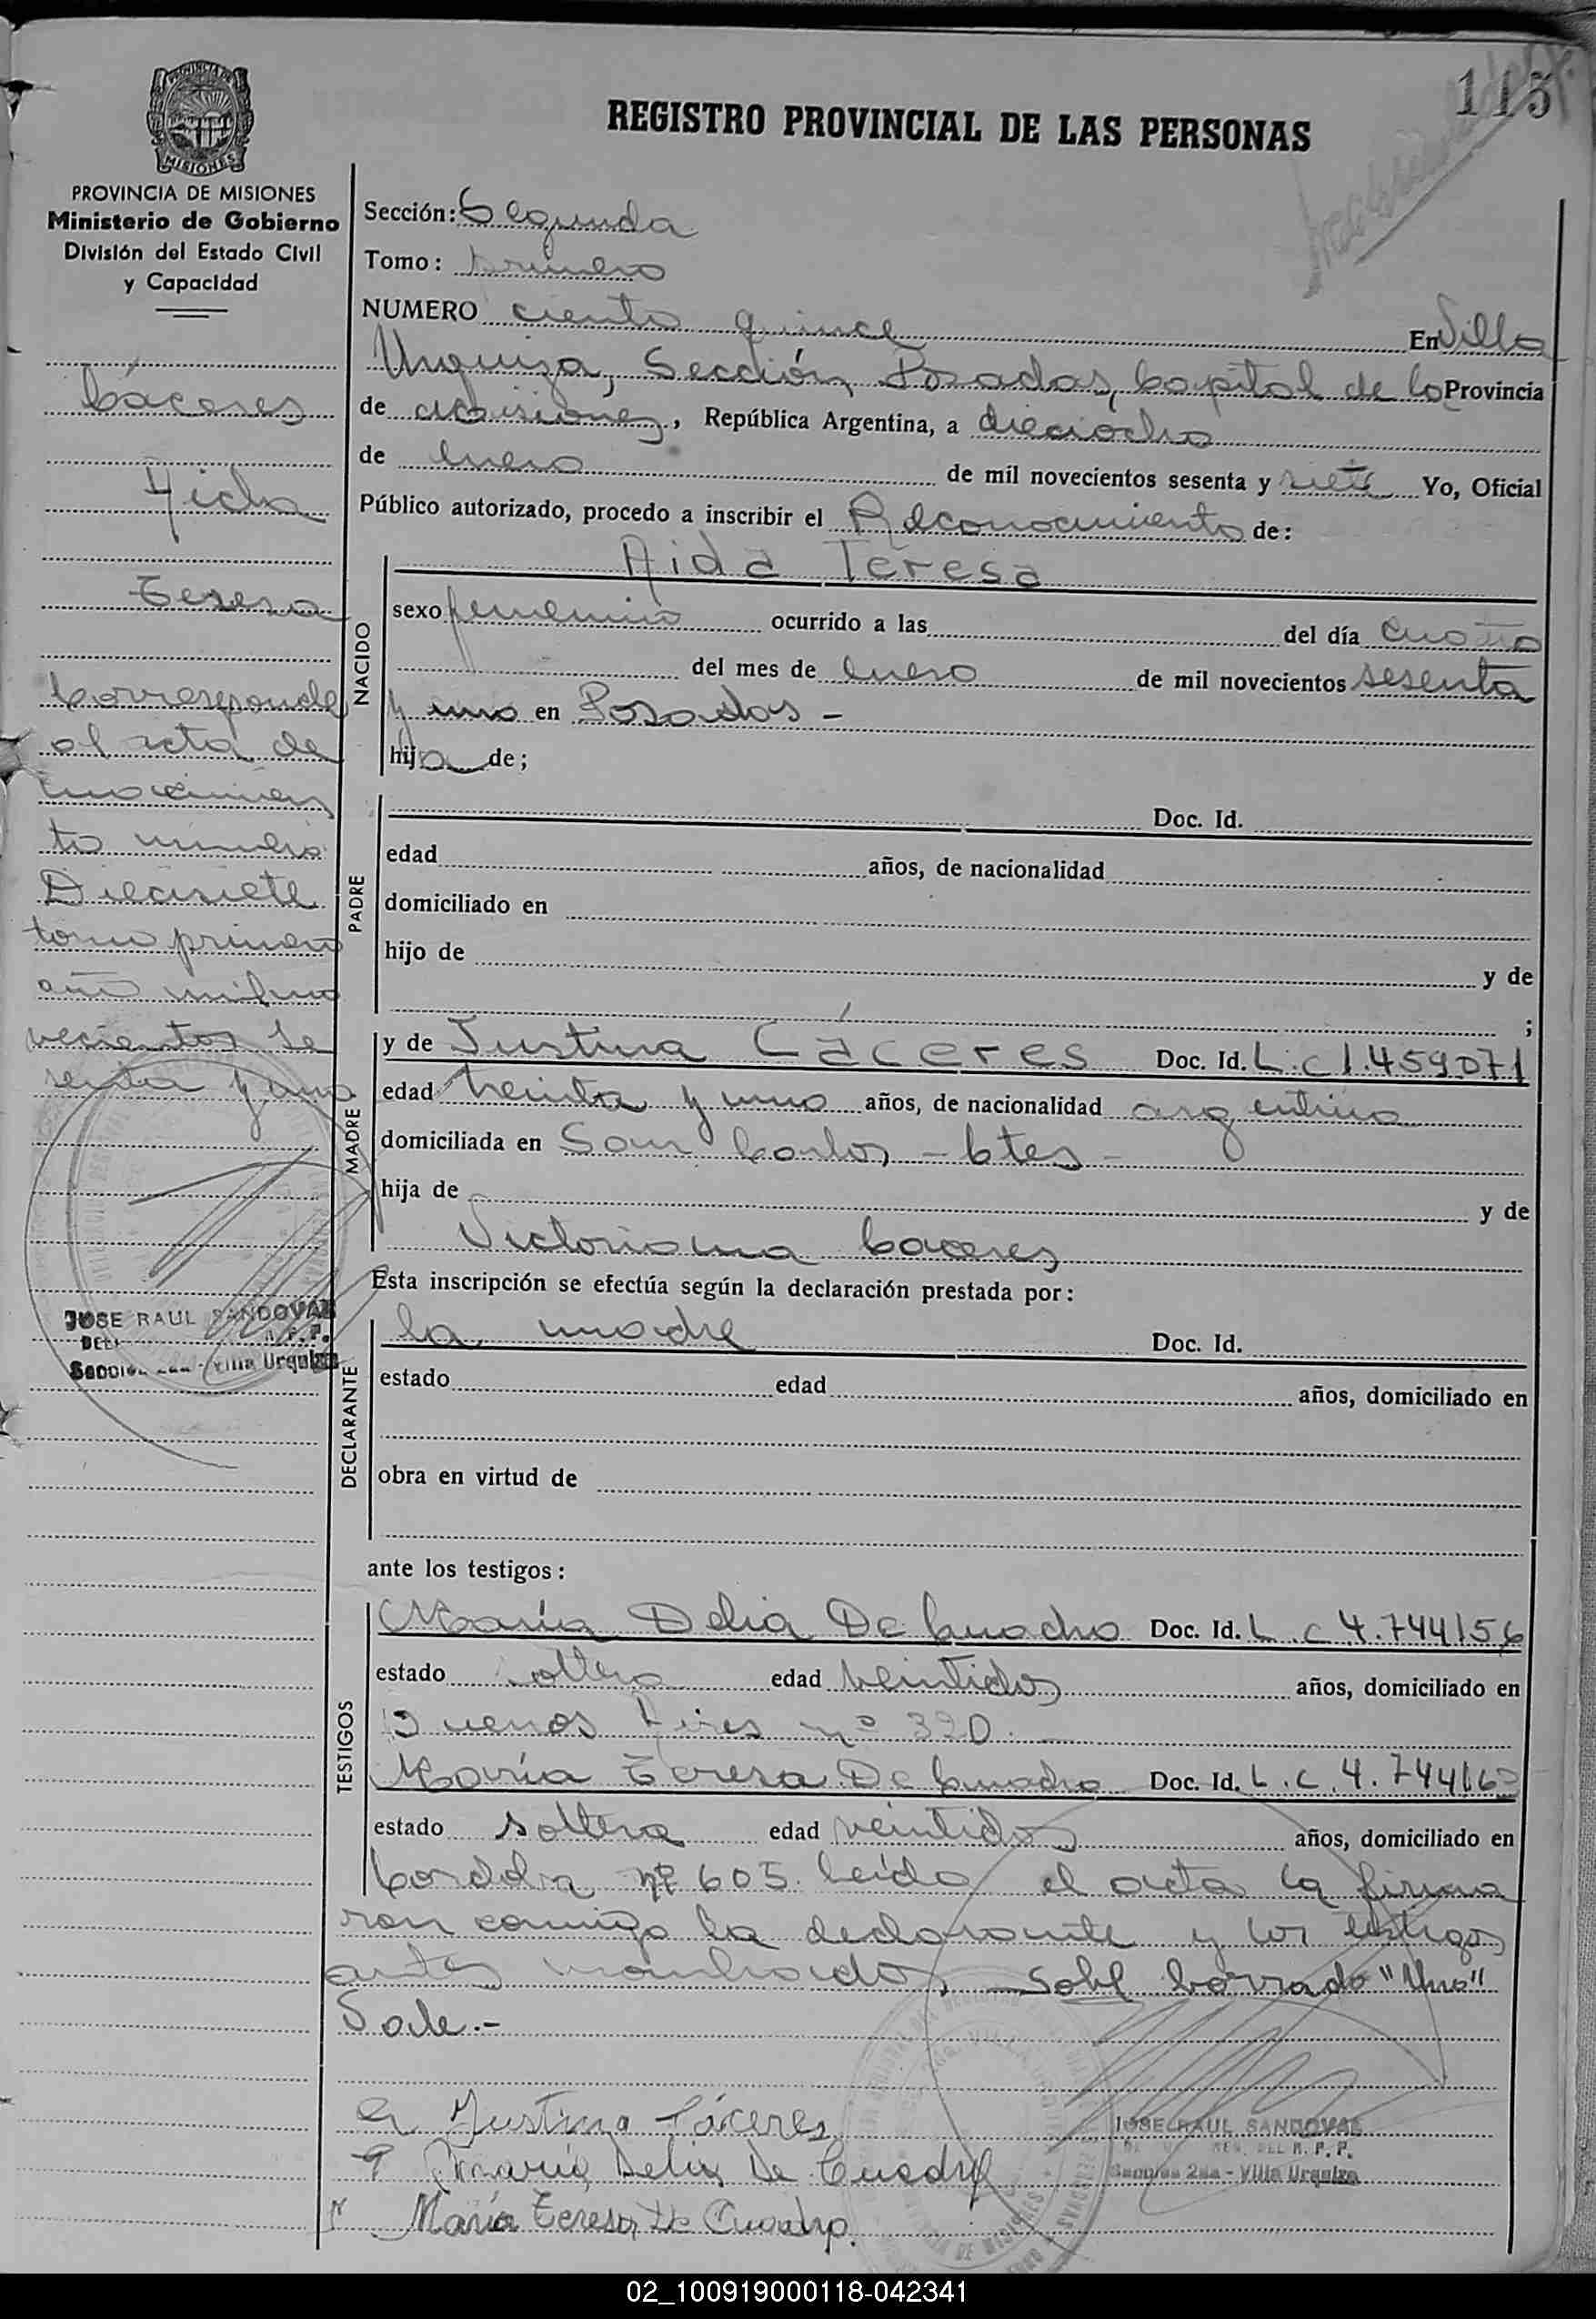 115
REGISTRO PROVINCIAL DE LAS PERSONAS
PROVINCIA DE MISIONES
MISIONES
PROVINCIA DE MISIONES
Ministerio de Gobierno
División del Estado Civil
y Capacidad
Cáceres
Aida
Teresa
Corresponde
al acta de
nacimien
to número
Diecisiete
tomo primero
año mil no
vecientos se
senta y uno
JOSE RAUL SANDOVAL
R. P. P.
Villa Urquiza
Sección: Segunda
Tomo: primero
NUMERO ciento quince En Villa
Urquiza, Sección Posadas, Capital de la Provincia
de Misiones, República Argentina, a dieciocho
de Enero de mil novecientos sesenta y siete Yo, Oficial
Público autorizado, procedo a inscribir el Reconocimiento de:
NACIDO
Aida Teresa
sexo femenino ocurrido a las del día cuatro
del mes de Enero de mil novecientos sesenta
y uno en Posadas -
hija de;
PADRE
Doc. Id.
edad años, de nacionalidad
domiciliado en
hijo de y de
;
MADRE
y de Justina Cáceres Doc. Id. L.C 1.459071
edad treinta y uno años, de nacionalidad argentina
domiciliada en San Carlos - Ctes -
hija de y de
Victoriana Caceres
Esta inscripción se efectúa según la declaración prestada por:
DECLARANTE
la madre Doc. Id.
estado edad años, domiciliado en
obra en virtud de
ante los testigos:
TESTIGOS
María Delia De Cuadro Doc. Id. L.C 4.744156
estado soltera edad veintidos años, domiciliado en
Buenos Aires nº 320.
María Teresa De Cuadro Doc. Id. L.C. 4.744162
estado soltera edad veintidos años, domiciliado en
Cordoba nº 605. Leída el acta la firma
ron conmigo la declarante y los testigos
antes nombrados, - Sobre borrado "Uno"
Vale.-
Justina Cáceres
María Delia De Cuadro
María Teresa De Cuadro.
JOSE RAUL SANDOVAL
DEL R. P. P.
Sección 2da - Villa Urquiza
02_100919000118-042341